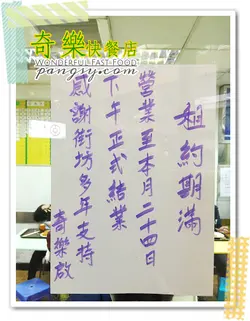 奇樂快餐店
WONDERFUL FAST FOOD
pangsy.com
租約期滿
營業至本月二十四日
下午正式結業
感謝街坊多年支持
奇樂啟